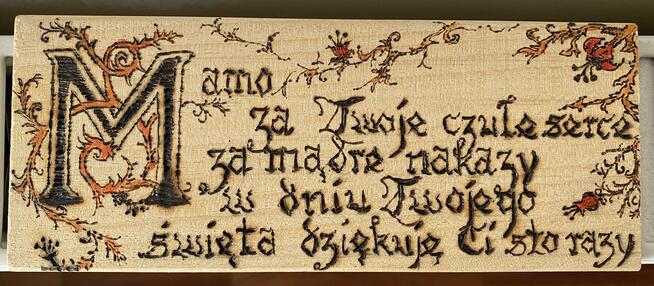 Mamo
za Twoje czułe serce
za mądre nakazy
w dniu Twojego
święta dziękuję Ci sto razy